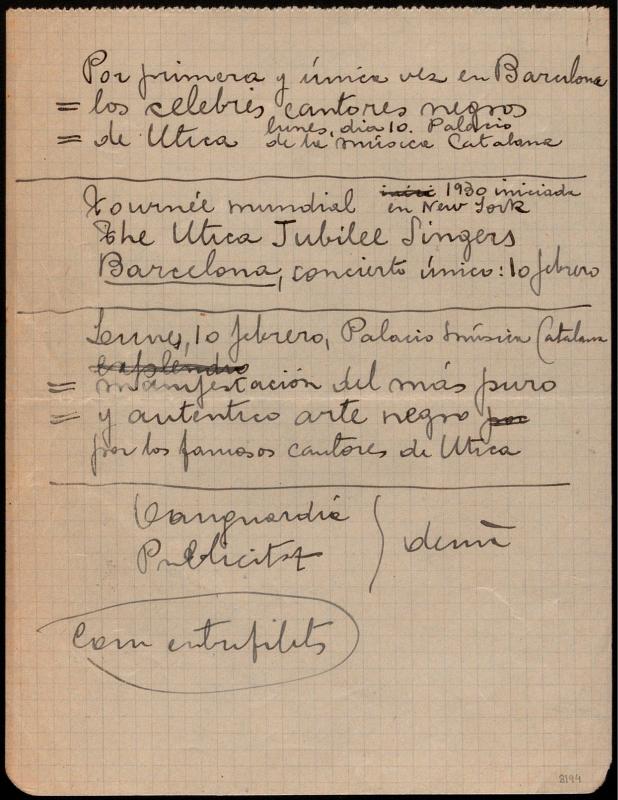 Por primera y única vez en Barcelona
= los celebres cantores negros
= de Utica lunes, dia 10. Palacio
de la música Catalana
Tournée mundial 1930 iniciada
en New York
The Utica Jubilee Singers
Barcelona, concierto único: 10 febrero
Lunes, 10 febrero, Palacio música Catalana
= manifestación del más puro
= y autentico arte negro por
por los famosos cantores de Utica
Vanguardia
Publicitat
demà
Com entrefilets
8194